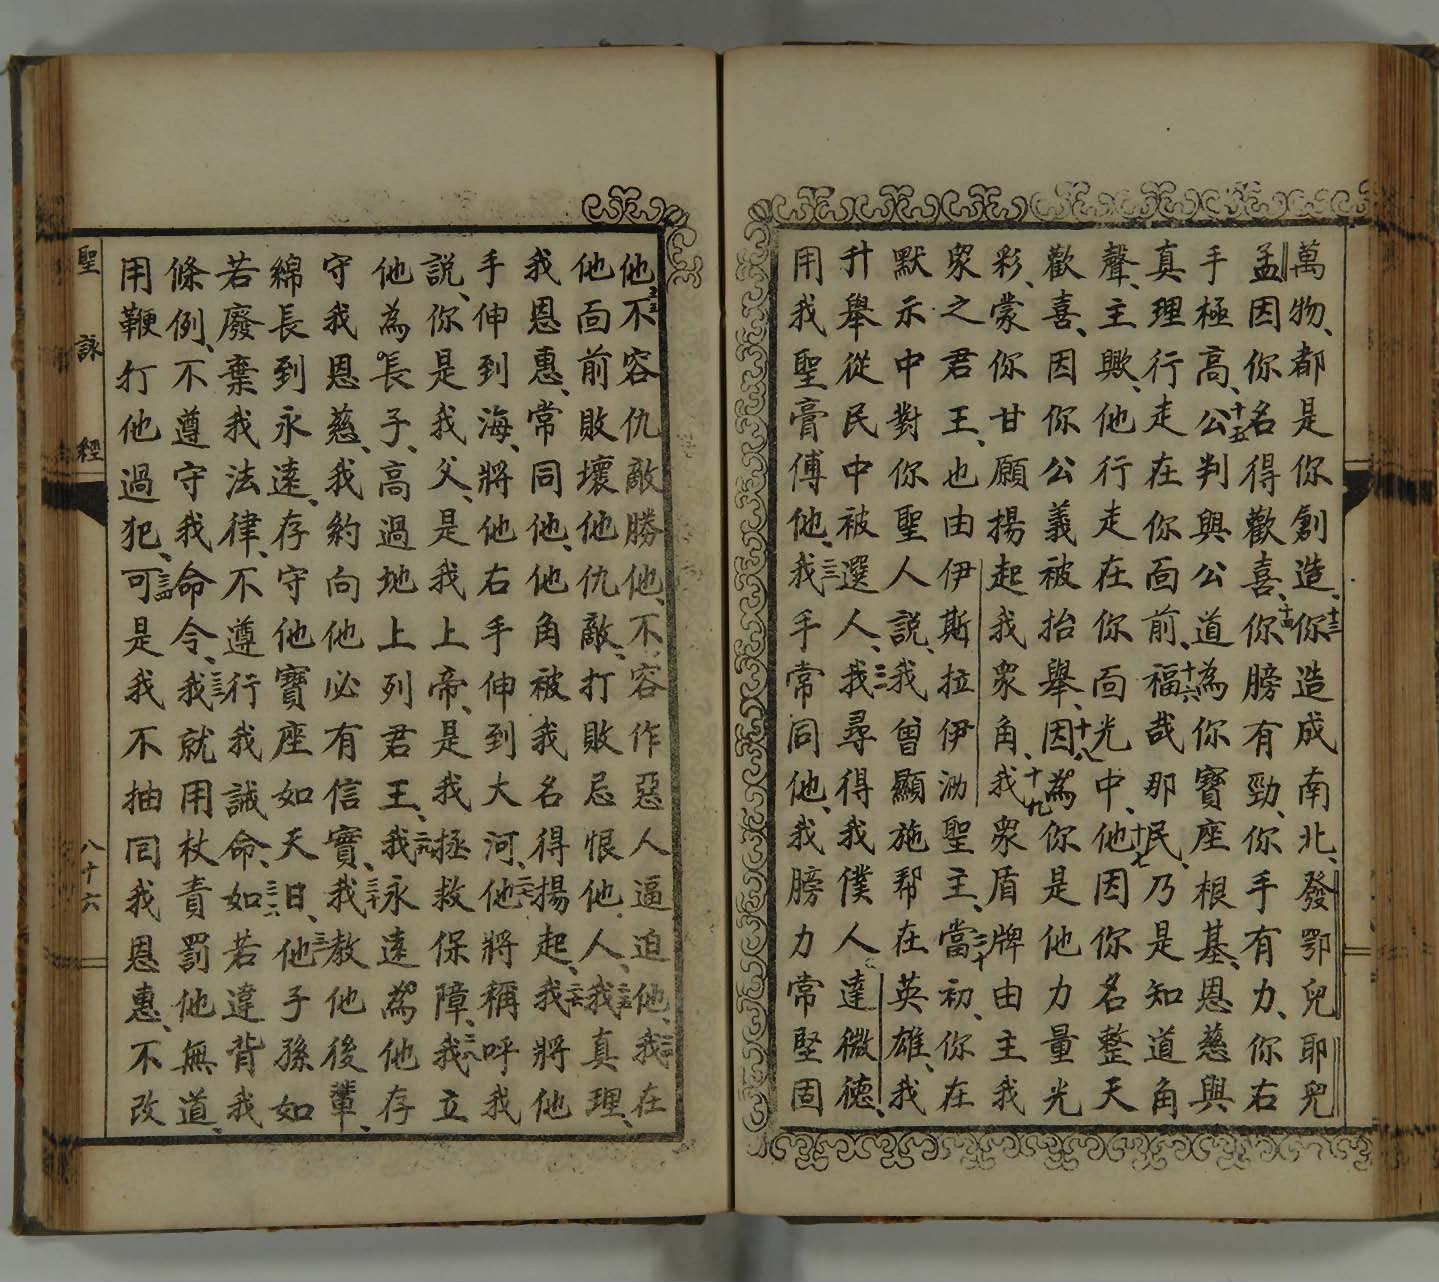 萬物、都是你創造、十三你造成南北、發鄂兒耶兒
孟因你名得歡喜、十四你膀有勁、你手有力、你右
手極高、十五公判與公道為你寶座根基、恩慈與
真理行走在你面前、十六福哉那民、乃是知道角
聲、主歟、他行走在你面光中、十七他因你名整天
歡喜、因你公義被抬舉、十八因為你是他力量光
彩、蒙你甘願揚起我衆角、十九我衆盾牌由主我
衆之君王、也由伊斯拉伊泐聖主、二十當初、你在
默示中對你聖人說、我曾顯施帮在英雄、我
升舉從民中被選人、二一我尋得我僕人達微德、
用我聖膏傅他、二二我手常同他、我膀力常堅固
他、二三不容仇敵勝他、不容作惡人逼迫他、二四我在
他面前敗壞他仇敵、打敗忌恨他人、二五我真理、
我恩惠、常同他、他角被我名得揚起、二六我將他
手伸到海、將他右手伸到大河、二七他將稱呼我
說、你是我父、是我上帝、是我拯救保障、二八我立
他為長子、高過地上列君王、二九我永遠為他存
守我恩慈、我約向他必有信實、三十我教他後輩、
綿長到永遠、存守他寶座如天日、三一他子孫如
若廢棄我法律、不遵行我誡命、三二如若違背我
條例、不遵守我命令、三三我就用杖責罰他無道、
用鞭打他過犯、三四可是我不抽回我恩惠、不改
聖詠經
八十六